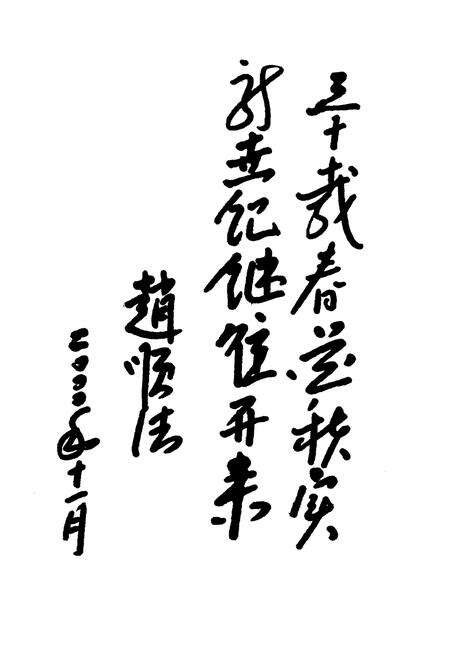 三十载春华秋实
新世纪继往开来
趙顺法
二〇〇〇年十一月